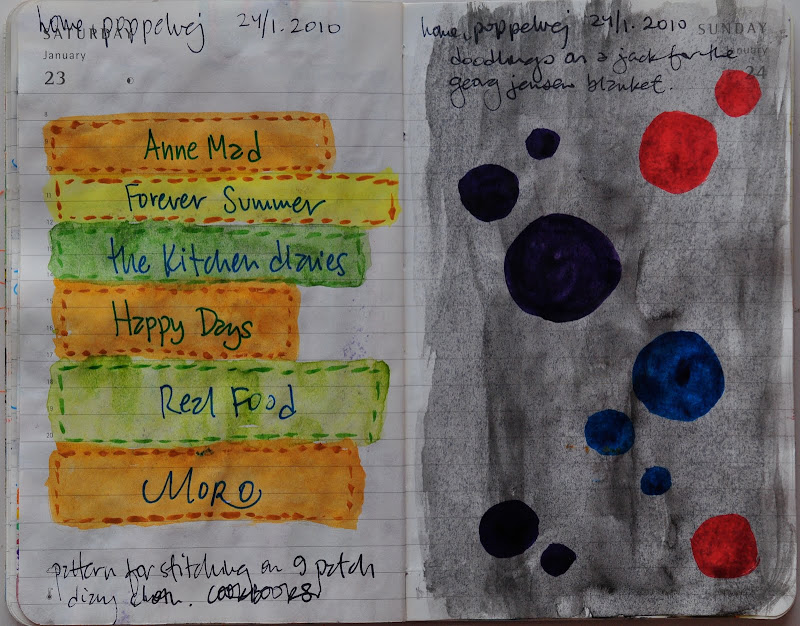 home, poppelvej 24/1.2010
SATURDAY
January
23
Anne Mad
Forever Summer
the Kitchen diaries
Happy Days
Real Food
MORO
pattern for stitching on 9 patch
diary cookbooks
home, poppelvej 24/1.2010
SUNDAY
January
24
doodlings on a jack for the
georg jensen blanket.